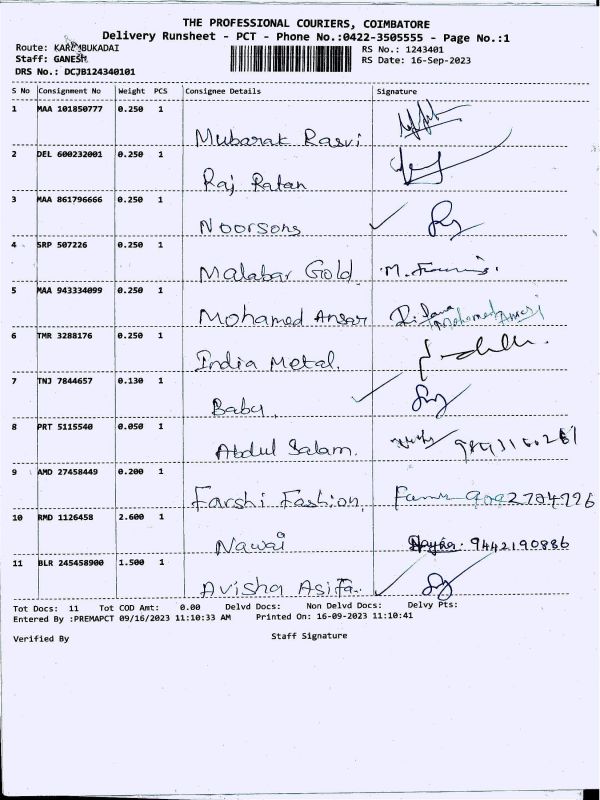 THE PROFESSIONAL COURIERS, COIMBATORE
Delivery Runsheet - PCT - Phone No.:0422-3505555 - Page No.:1
Route: KARUMBUKADAI
RS No.: 1243401
Staff: GANESH
RS Date: 16-Sep-2023
DRS No.: DCJB124340101
S No Consignment No Weight PCS Consignee Details Signature
1 MAA 101850777 0.250 1
Mubarak Rasvi
2 DEL 600232001 0.250 1
Raj Ratan
3 MAA 861796666 0.250 1
Noorsons
4 SRP 507226 0.250 1
Malabar Gold
5 MAA 943334099 0.250 1
Mohamed Ansar Mohamed
6 TMR 3288176 0.250 1
India Metal.
7 TNJ 7844657 0.130 1
Baby.
8 PRT 5115540 0.050 1
Abdul Salam.
9 AMD 27458449 0.200 1
Farshi Fashion.
10 RMD 1126458 2.600 1
Nawai 9442190886
11 BLR 245458900 1.500 1
Avisha Asifa.
Tot Docs: 11 Tot COD Amt: 0.00 Delvd Docs: Non Delvd Docs: Delvy Pts:
Entered By :PREMAPCT 09/16/2023 11:10:33 AM Printed On: 16-09-2023 11:10:41
Verified By Staff Signature